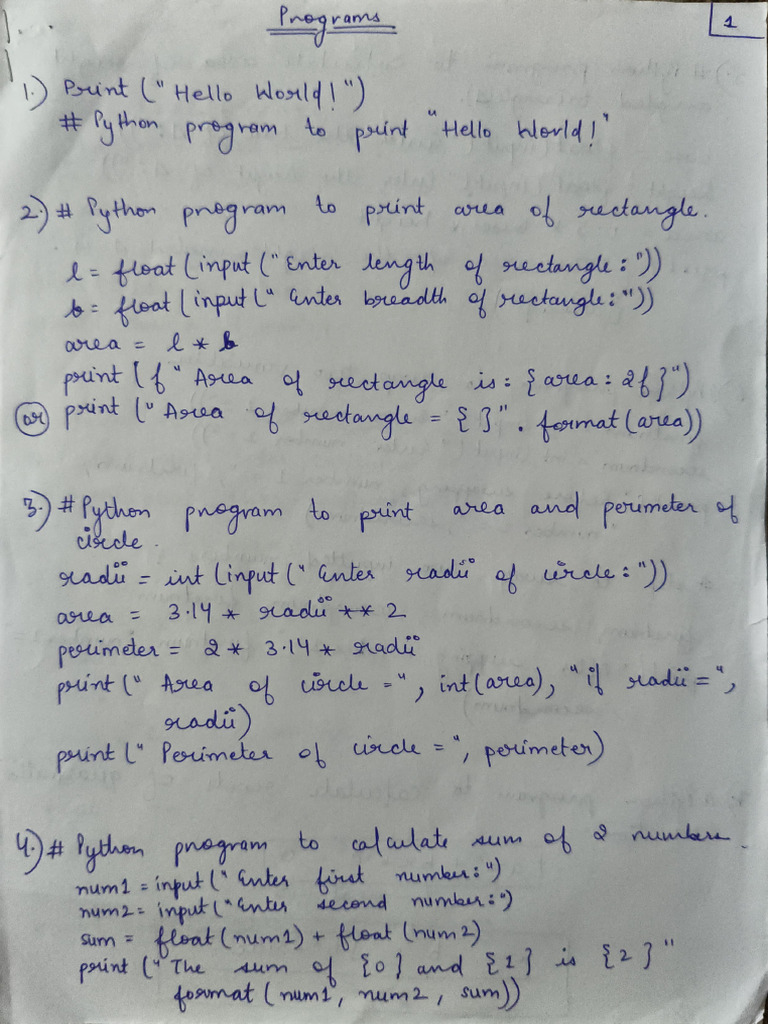 Programs
1
1.) Print ("Hello World!")
# Python program to print "Hello World!"
2.) # Python program to print area of rectangle.
l = float (input ("Enter length of rectangle:"))
b = float (input (" Enter breadth of rectangle:"))
area = l * b
print (f "Area of rectangle is: {area: 2f}")
(or) print ("Area of rectangle = { }". format (area))
3.) # Python program to print area and perimeter of
circle.
radii = int (input (" Enter radii of circle:"))
area = 3.14 * radii ** 2
perimeter = 2 * 3.14 * radii
print (" Area of circle =", int (area), "if radii =",
radii)
print (" Perimeter of circle =", perimeter)
4.) # Python program to calculate sum of 2 numbers.
num1 = input (" Enter first number:")
num2 = input (" Enter second number:")
sum = float (num1) + float (num2)
print (" The sum of {0} and {1} is {2}"
format (num1, num2, sum))